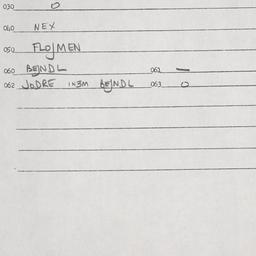 030 O
040 NEX
050 FLOJMEN
060 BEJNDL 062 —
062 JODRE IN3M BEJNDL 063 O